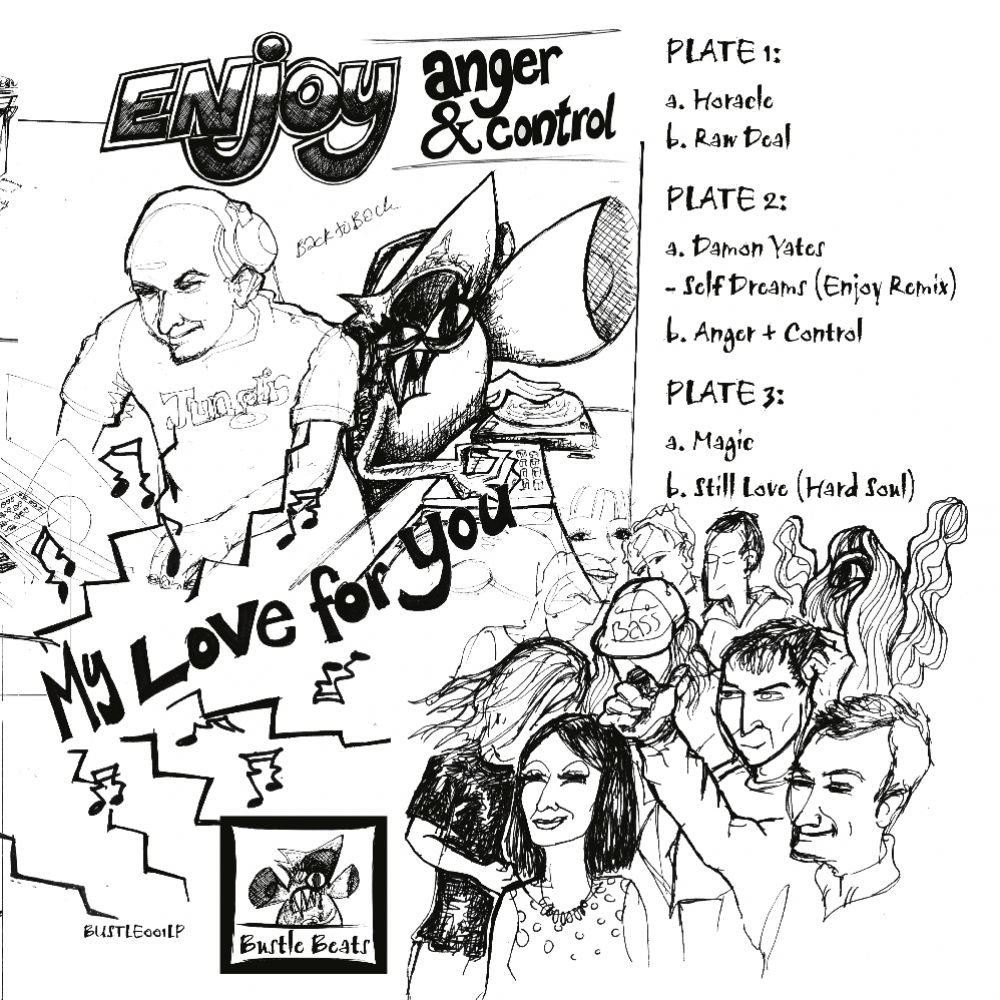 Enjoy
anger
& control
PLATE 1:
a. Horacle
b. Raw Deal
PLATE 2:
a. Damon Yates
- Self Dreams (Enjoy Remix)
b. Anger + Control
PLATE 3:
a. Magic
b. Still Love (Hard Soul)
Back to Back
My Love for you
Bass
BUSTLE001LP
Bustle Beats